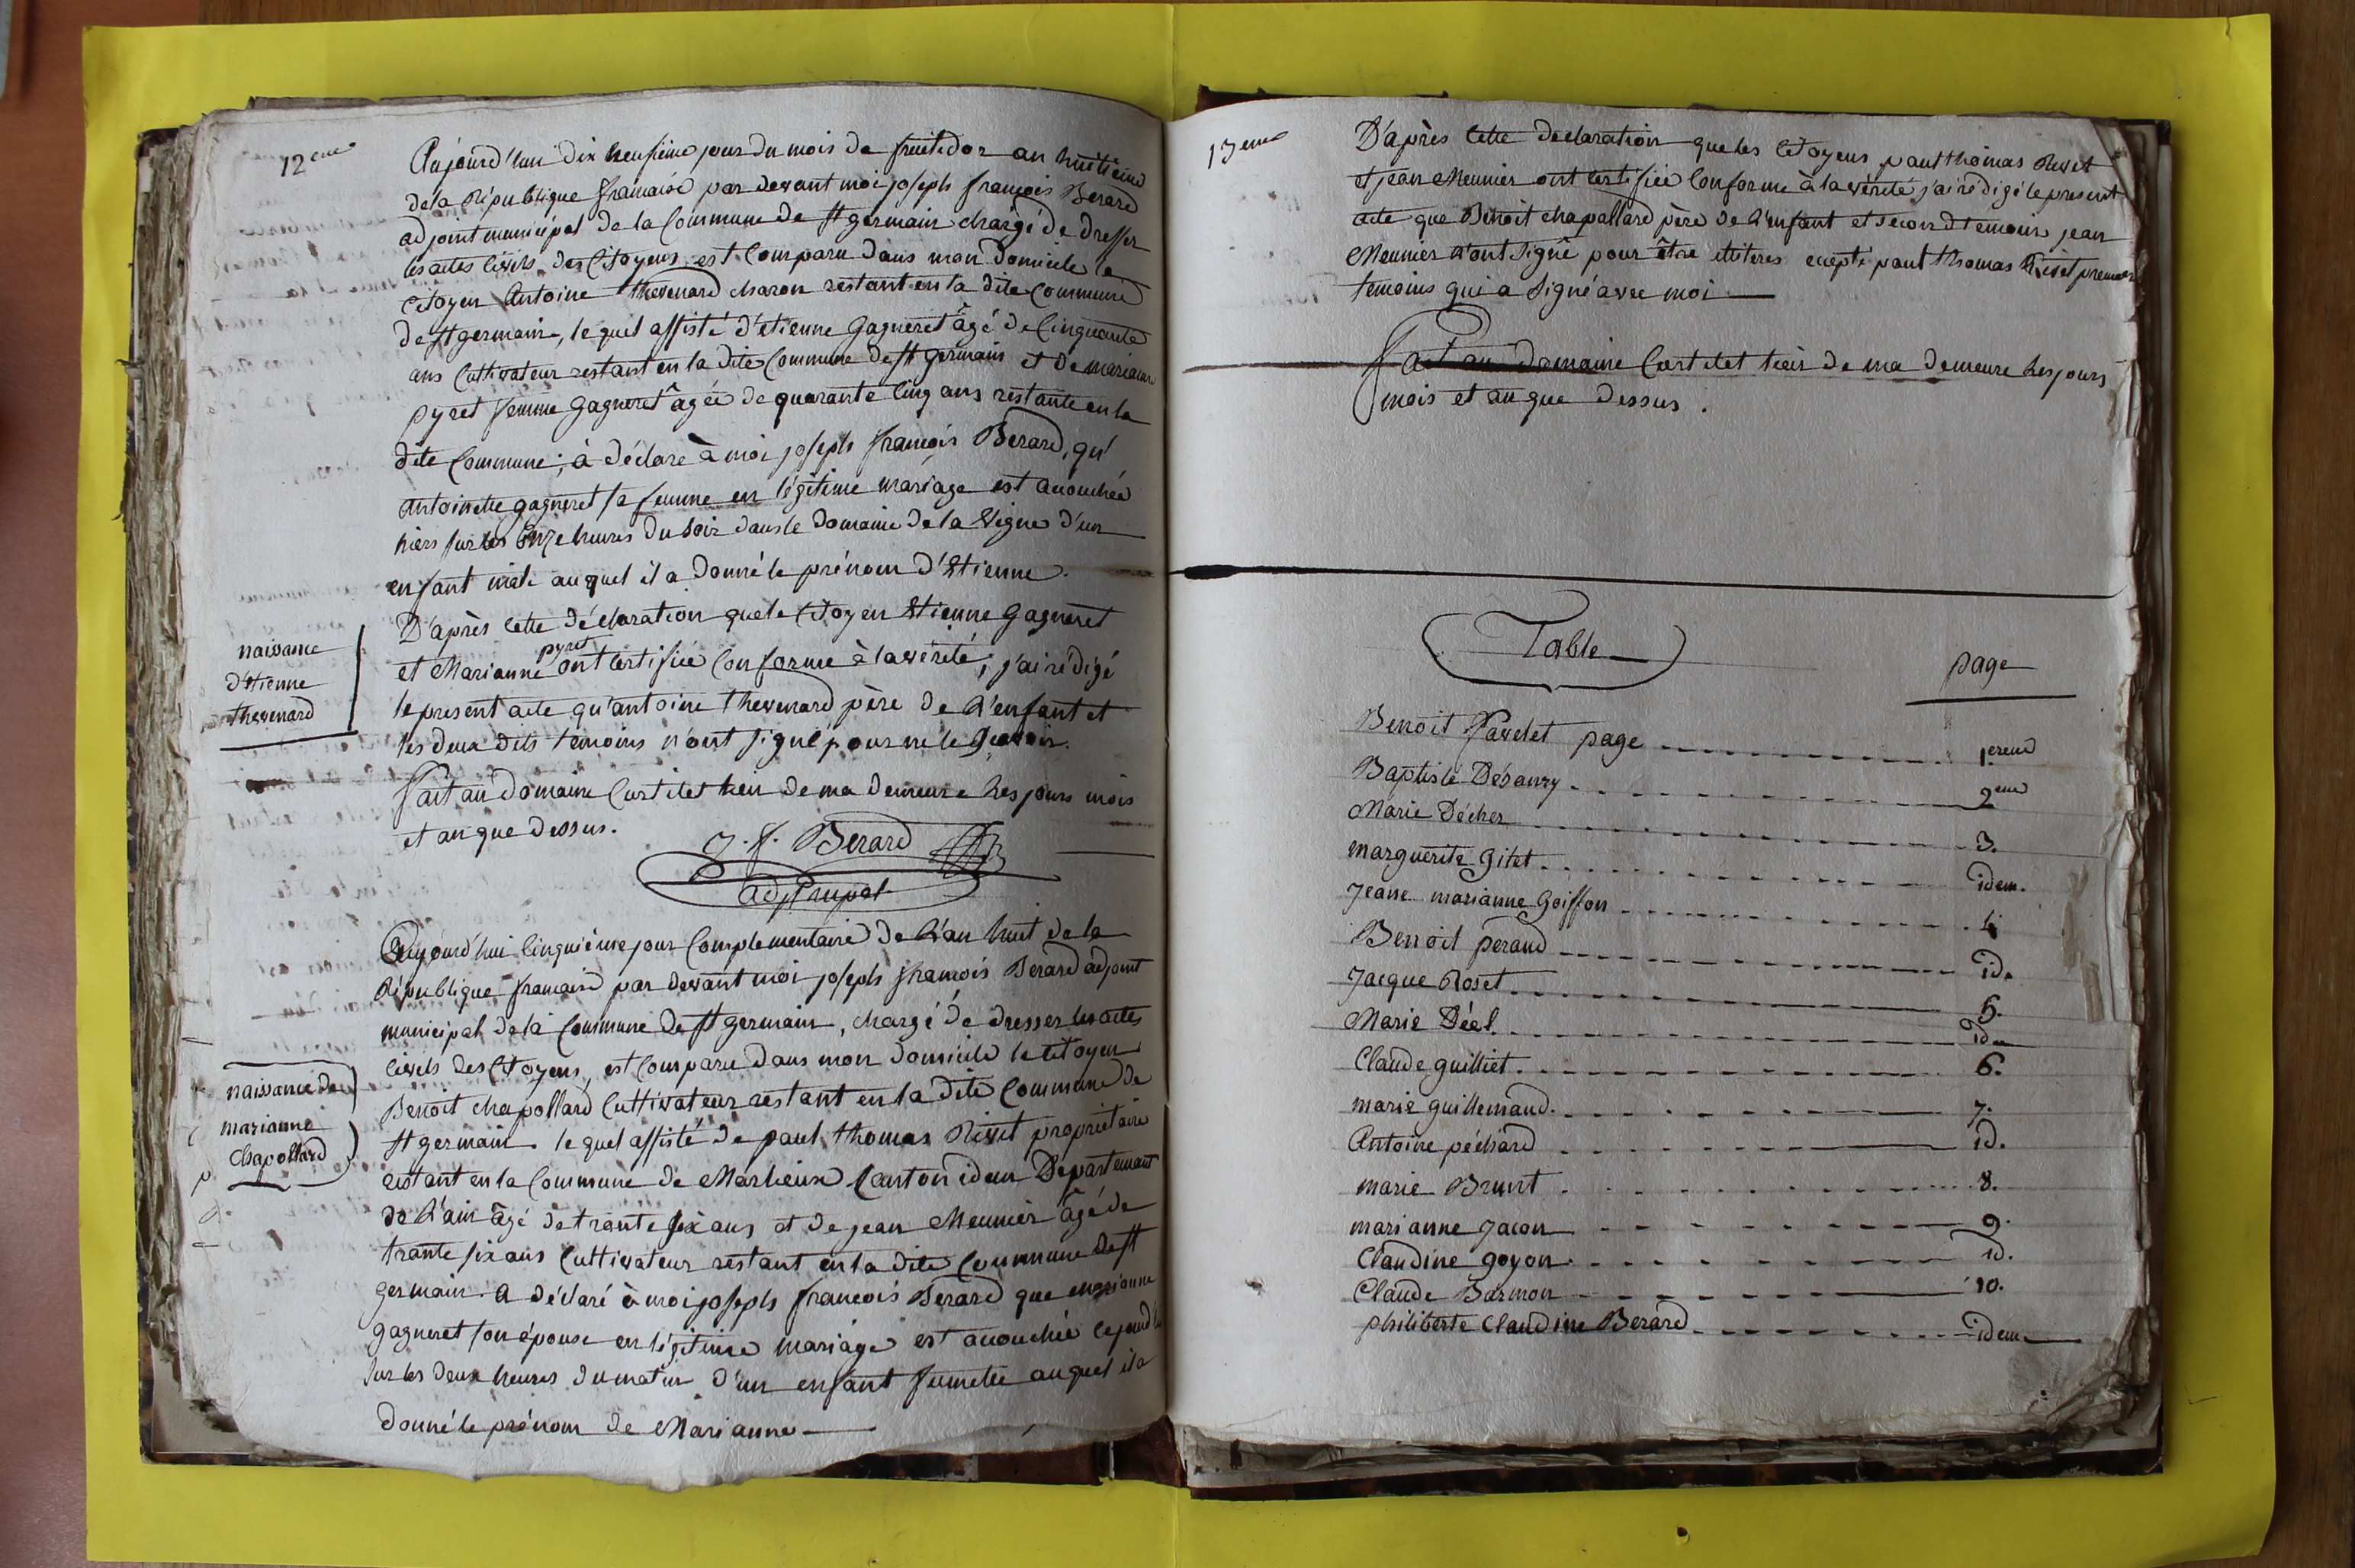 12eme
Aujourd'hui dix neufième jour du mois de fructidor an huitième
de la République française par devant moi joseph françois Berard
adjoint municipal de la Commune de St germain chargé de dresser
les actes Civils des Citoyens est Comparu dans mon domicile le
Citoyen Antoine thevenard charon restant en la dite Commune
de St germain, le quel assisté d'etienne Gagneret âgé de Cinquante
ans Cultivateur restant en la dite Commune de St germain et de mariane
pyret femme Gagneret âgée de quarante Cinq ans restante en la
dite Commune; à déclare à moi joseph françois Berard, qu'
antoinette gagneret sa femme en légitime mariage est acouchée
hiers sur les onze heures du soir dans le Domaine de la Vigne d'un
enfant male auquel il a donné le prénom d'Etienne.
naissance
d'etienne
thevenard
D'après Cette déclaration que le Citoyen Etienne Gagneret
et Marianne pyret ont Certifiée Conforme à la vérité; j'ai rédigé
le present acte qu'antoine thevenard père de L'enfant et
les deux dits temoins n'ont signé pour ne le savoir.
fait au domaine Curtitet lieu de ma demeure les jours mois
et an que dessus.
J. f. Berard
adj
Aujourd'hui Cinquième jour Complementaire de L'an huit de la
République française par devant moi joseph françois Berard adjoint
municipal de la Commune de St germain, chargé de dresser les actes
Civils des Citoyens, est Comparu dans mon domicile le Citoyen
naissance de
marianne
Chapollard
Benoit chapollard Cultivateur restant en la dite Commune de
St germain. le quel assisté de paul thomas Rivet propriétaire
restant en la Commune de Marlieux Canton idem Departement
de L'ain âgé de trante six ans et de jean Meunier âgé de
trante six ans Cultivateur restant en la dite Commune de St
germain. A déclaré à moi joseph françois Berard que marianne
gagneret son épouse en légitime mariage est acouchée
sur les deux heures du matin d'un enfant fumelle auquel il a
donné le prénom de Marianne
13eme
D'après Cette declaration que les Citoyens paul thomas Rivet
et jean Meunier ont Certifiée Conforme à la vérité j'ai rédigé le present
acte que Benoit chapallard père de L'enfant et second temoins jean
Meunier n'ont signé pour être illiteres excepté paul thomas Rivet premier
temoins qui a signé avec moi
fait au Domaine Curtitet lieu de ma demeure les jours
mois et an que dessus.
Table
page
Benoit page 1ereme
Baptiste Desaury 2eme
Marie Décher 3.
marguerite Gitet idem.
Jeane marianne Goiffon 4
Benoit peraud id.
Jacque Roset 5.
Marie Déel id
Claude guilliet 6.
marie guillemaud 7.
Antoine péchard id.
marie Brunt 8.
marianne Jacon 9.
Claudine goyon id.
Claude Barmon 10.
philiberte Claudine Berard idem